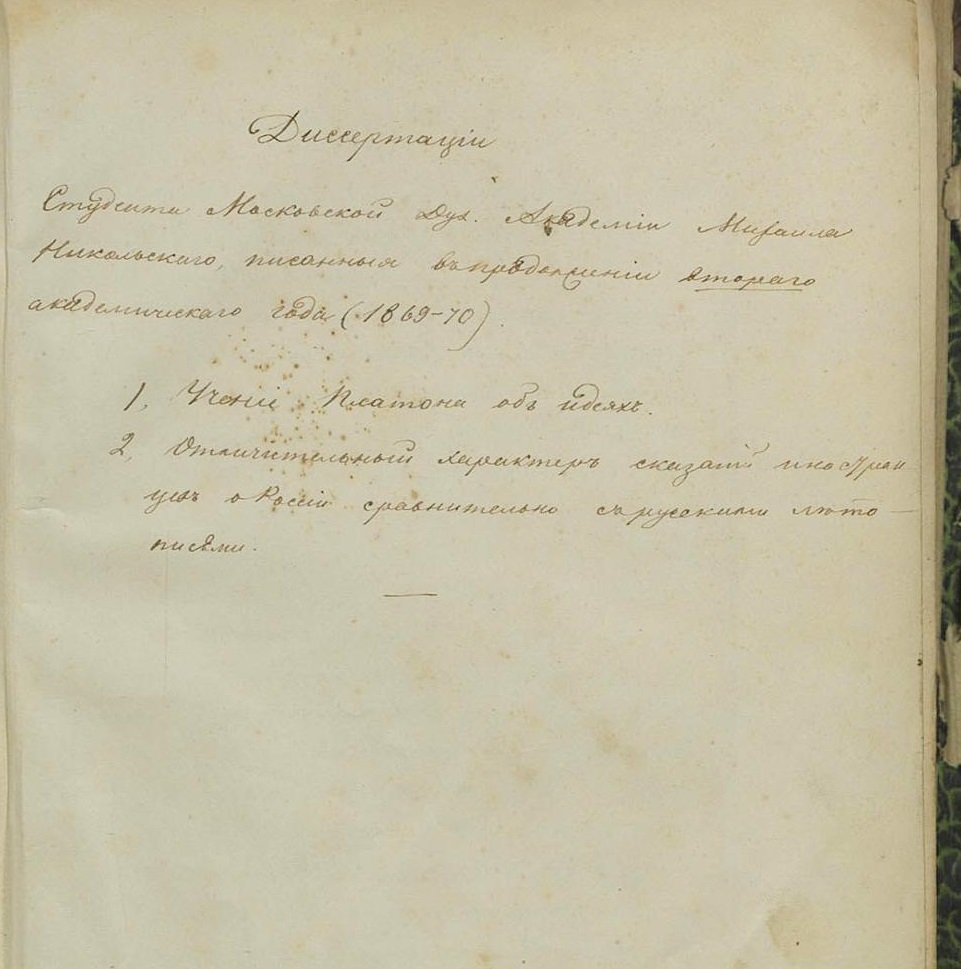 Диссертаціи
Студента Московской Дух. Академіи Михаила
Никольскаго, писанныя въ продолженіи втораго
академическаго года (1869-70).
1, Ученіе Платона объ идеяхъ.
2, Отличительный характеръ сказаній иностран-
цевъ о Россіи сравнительно съ русскими лѣто-
писями.